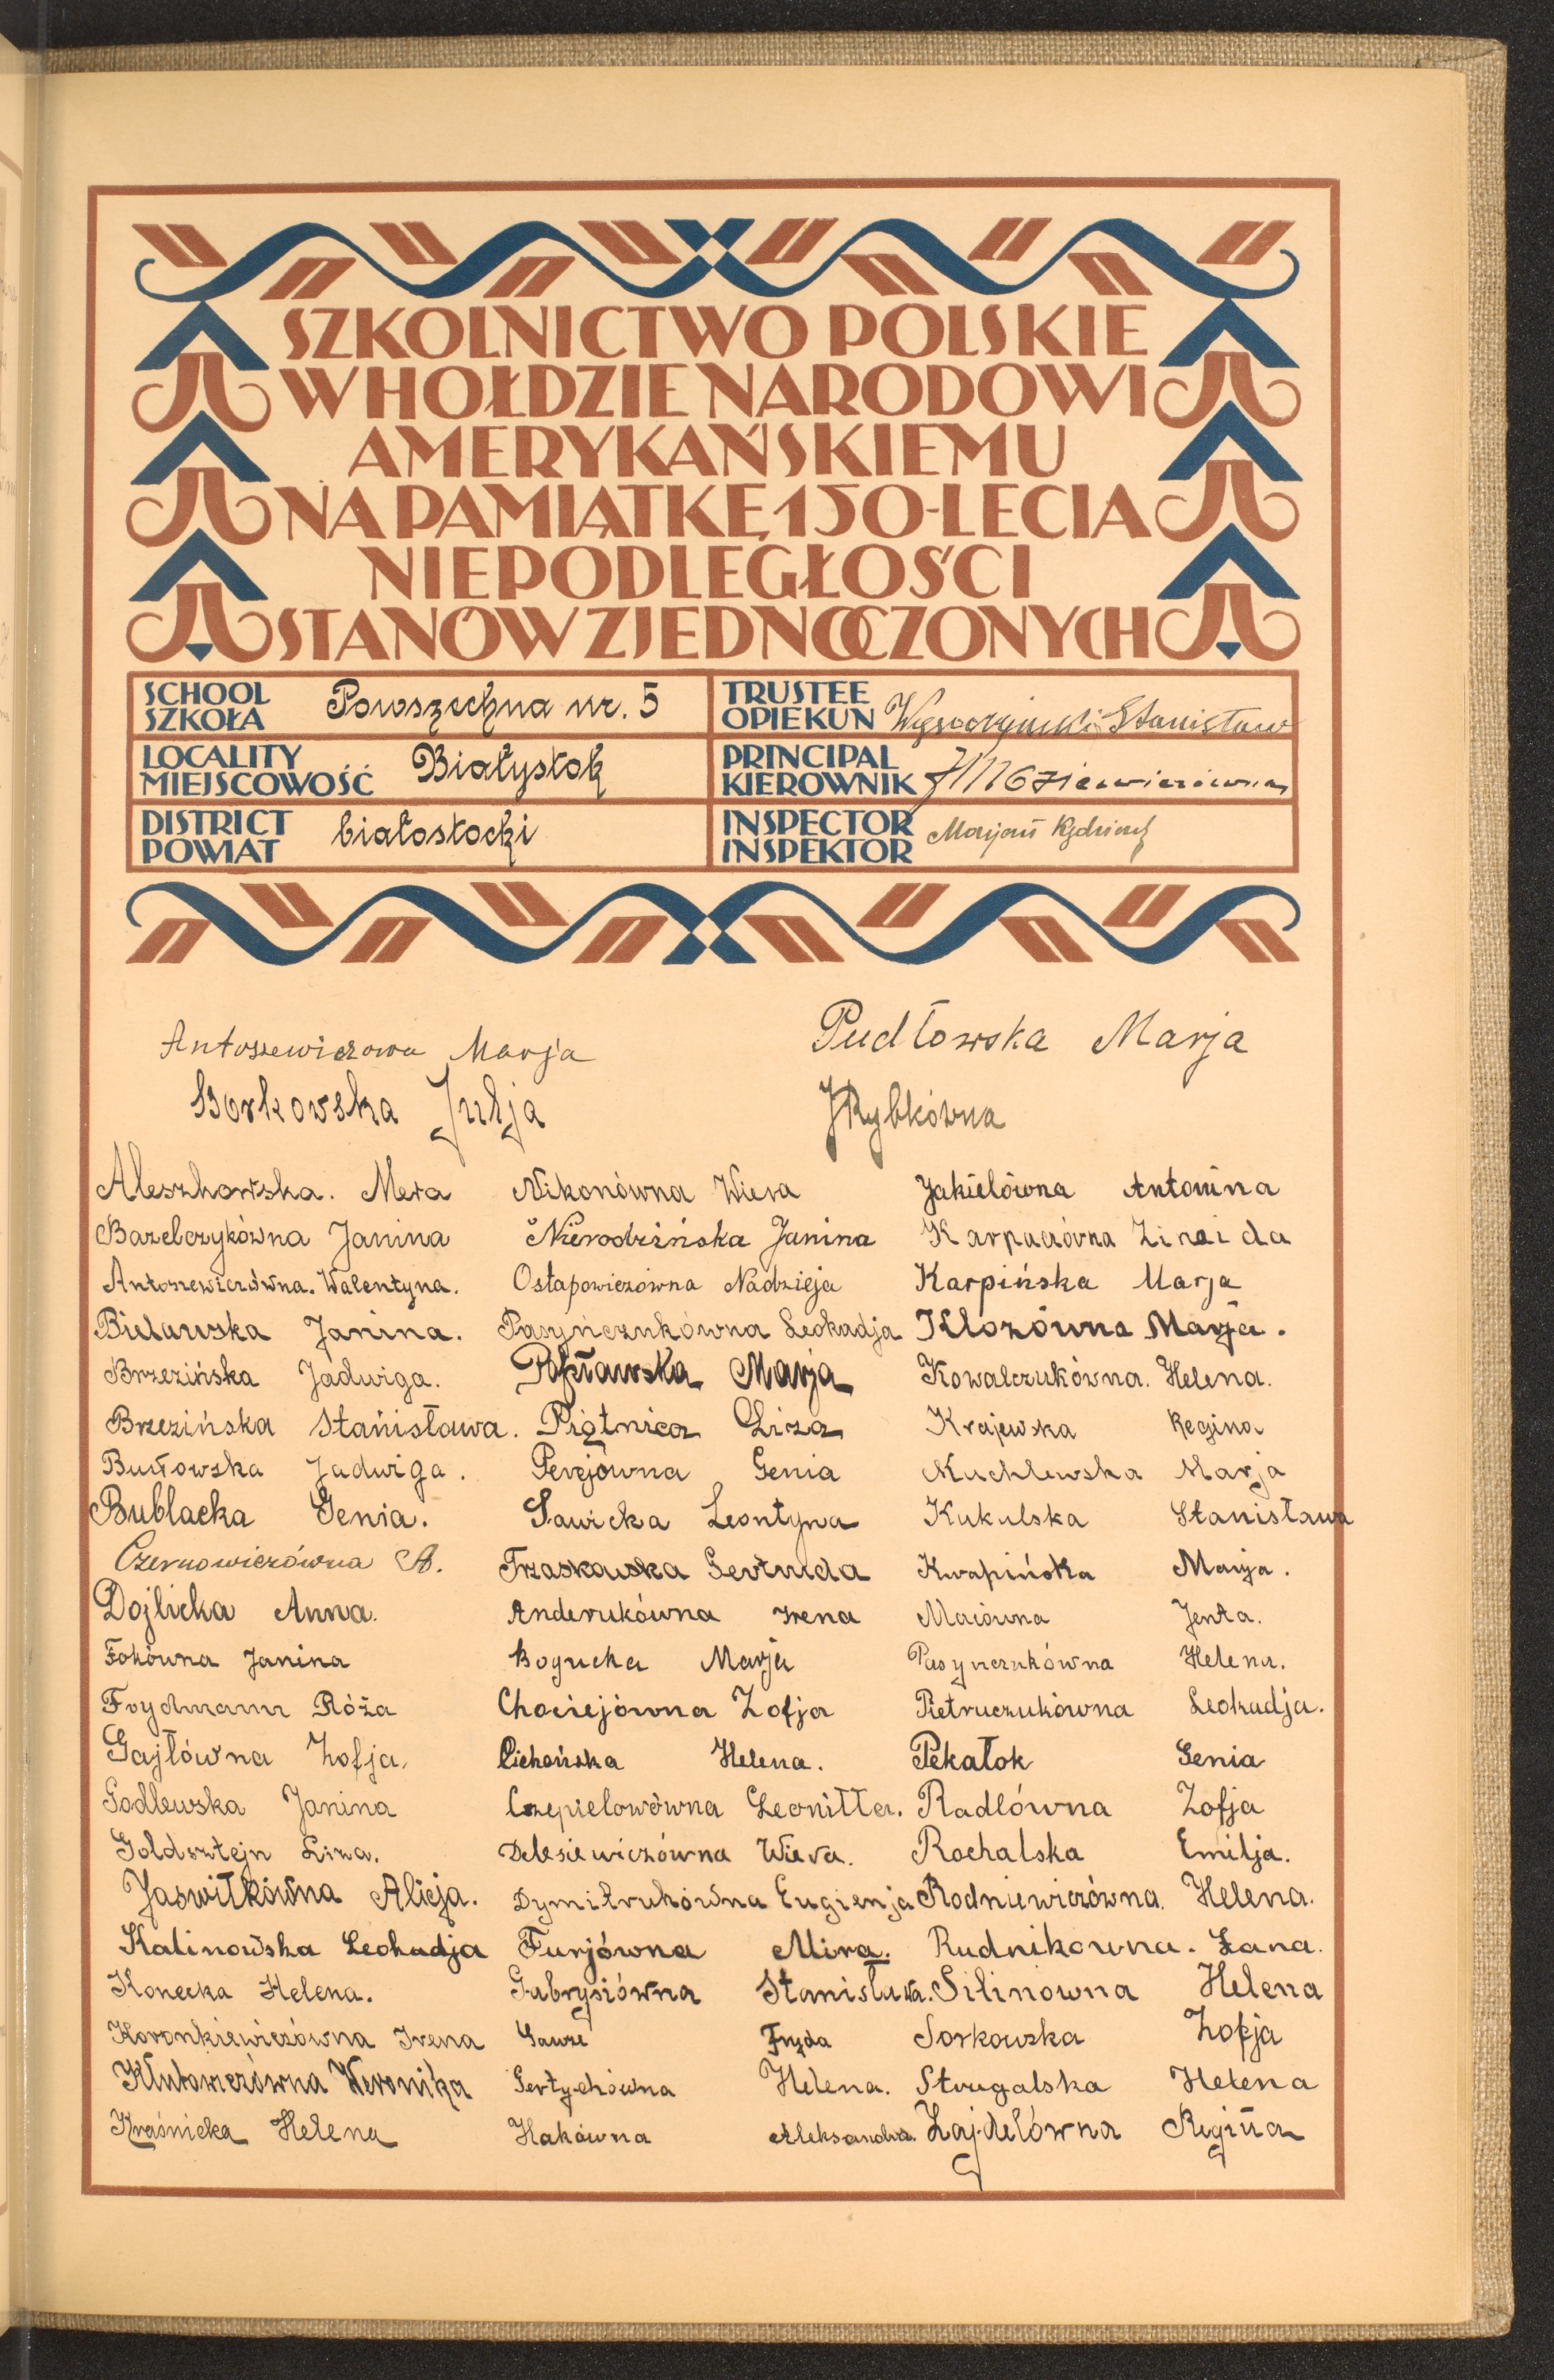 SZKOLNICTWO POLSKIE
W HOŁDZIE NARODOWI
AMERYKAŃSKIEMU
NA PAMIĄTKĘ 150-LECIA
NIEPODLEGŁOŚCI
STANÓW ZJEDNOCZONYCH
SCHOOL
SZKOŁA
Powszechna nr. 5
TRUSTEE
OPIEKUN
Stanisław
LOCALITY
MIEJSCOWOŚĆ
Białystok
PRINCIPAL
KIEROWNIK
DISTRICT
POWIAT
białostocki
INSPECTOR
INSPEKTOR
Marjan
Antoszewiczowa Marja
Pudłowska Marja
Borkowska Julja
JRybkówna
Aleszkowska. Mera
Bazelczykówna Janina
Antoszewiczówna. Walentyna.
Bielawska Janina.
Brzezińska Jadwiga.
Brzezińska Stanisława.
Butowska Jadwiga.
Bublacka Genia.
Czernowiczówna A.
Dojlicka Anna.
Fokówna Janina
Frydmann Róża
Gajłówna Zofja.
Godlewska Janina
Goldsztejn Liza.
Jaswiłkówna Alicja.
Kalinowska Leokadja
Konecka Helena.
Koronkiewiczówna Irena
Klutowiczówna Weronika
Kraśnicka Helena
Nikonówna Wiera
Nierodzińska Janina
Ostapowiczówna Nadzieja
Pasyńczukówna Leokadja
Popławska Marja
Piątnica Liza
Perejówna Genia
Sawicka Leontyna
Trzaskowska Gertruda
Anderukówna Irena
Bogucka Marja
Chociejówna Zofja
Cichońska Helena.
Czepielowówna Leonitta.
Delesiewiczówna Wiera.
Dymitrukówna Eugienja
Furjówna Mira.
Gabrysiówna Stanisława.
Gawze Fryda
Gertychówna Helena.
Hakówna Aleksandra.
Jakielówna Antonina
Karpuciówna Zinaida
Karpińska Marja
Klozówna Marja.
Kowalczukówna. Helena.
Krajewska Regina
Kuchlewska Marja
Kukulska Stanisława
Kwapińska Marja.
Maiówna Jenta.
Pasynczukówna Helena.
Pietruczukówna Leokadja.
Pekałok Genia
Radlówna Zofja
Rochalska Emilja.
Rodniewiczówna. Helena.
Rudnikowna. Łana.
Silinowna Helena
Sorkowska Zofja
Strugalska Helena
Zajdelówna Regina